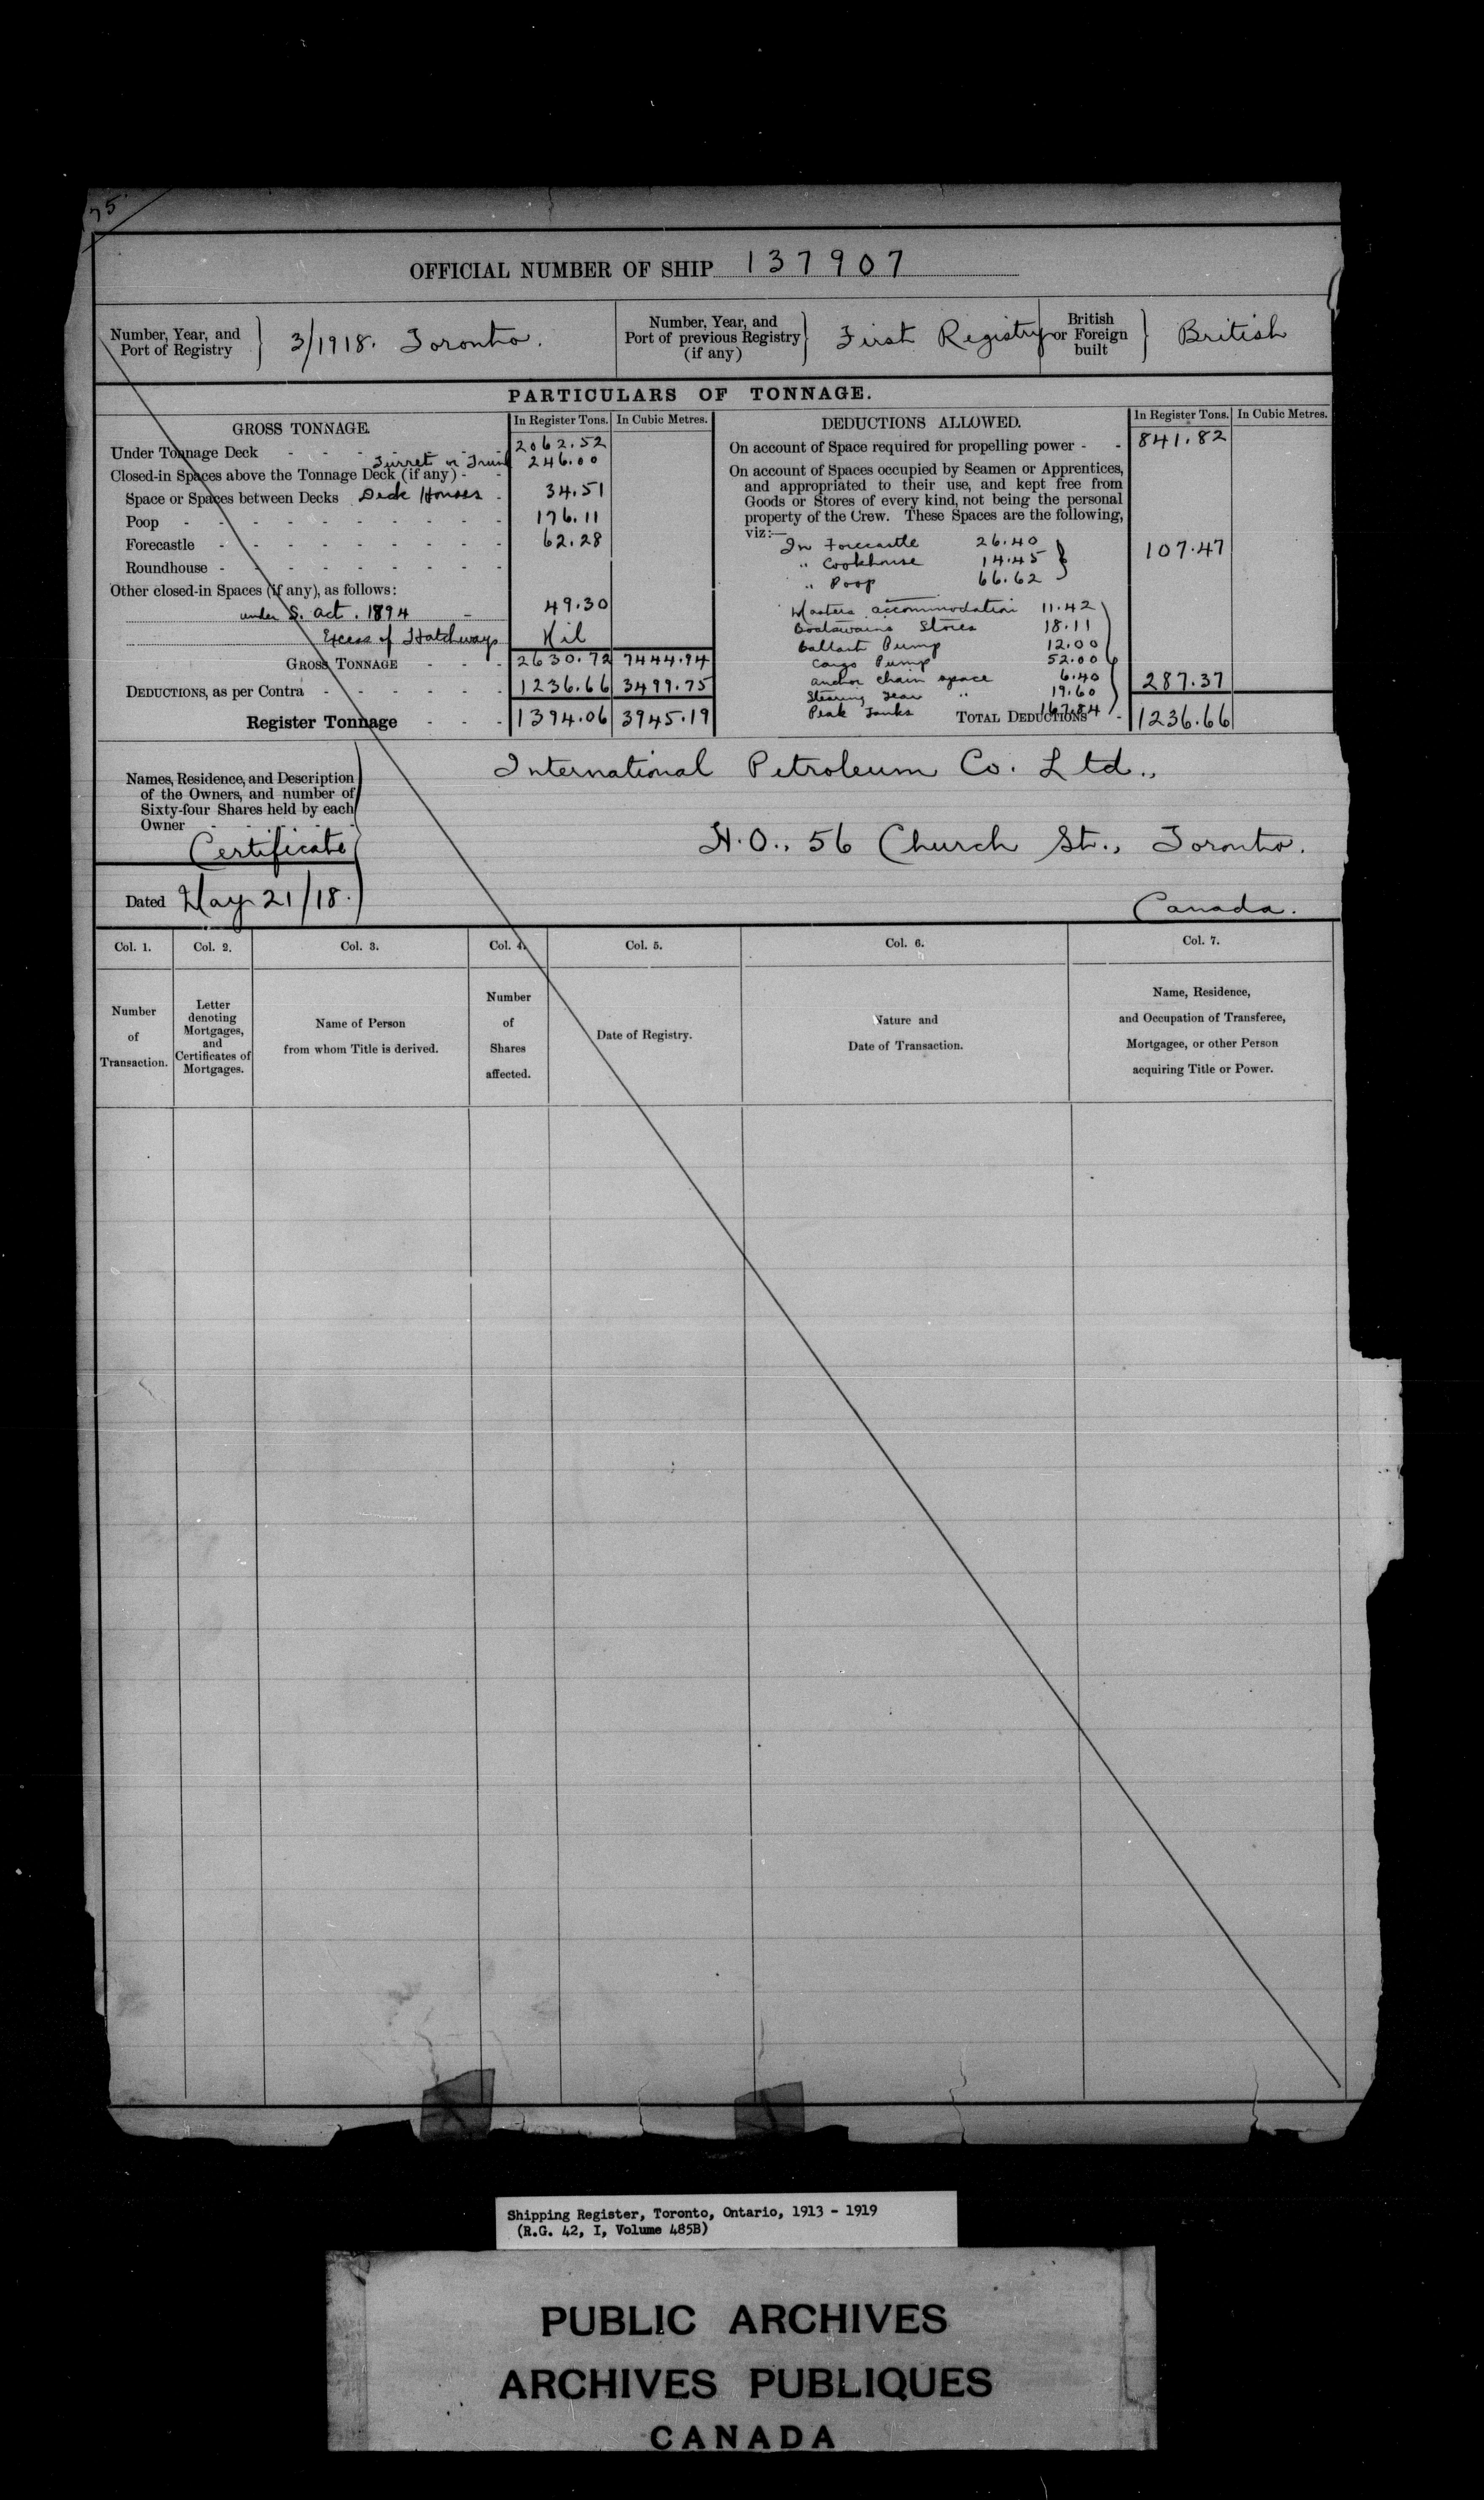 75
OFFICIAL NUMBER OF SHIP 137907
Number, Year, and Port of Registry } 3/1918. Toronto.
Number, Year, and Port of previous Registry (if any) } First Registry
British or Foreign built } British
PARTICULARS OF TONNAGE.
GROSS TONNAGE. In Register Tons. In Cubic Metres.
Under Tonnage Deck - - - - - 2062.52
Turret or Trunk 246.00
Closed-in Spaces above the Tonnage Deck (if any) - -
Space or Spaces between Decks Deck Houses - 34.51
Poop - - - - - - - - - - 176.11
Forecastle - - - - - - - - - 62.28
Roundhouse - - - - - - - - -
Other closed-in Spaces (if any), as follows:
under S. act. 1894 - 49.30
Excess of Hatchways Nil
GROSS TONNAGE - - - 2630.72 7444.94
DEDUCTIONS, as per Contra - - - - - - 1236.66 3499.75
Register Tonnage - - - 1394.06 3945.19
DEDUCTIONS ALLOWED. In Register Tons. In Cubic Metres.
On account of Space required for propelling power - - 841.82
On account of Spaces occupied by Seamen or Apprentices,
and appropriated to their use, and kept free from
Goods or Stores of every kind, not being the personal
property of the Crew. These Spaces are the following,
viz:—
In Forecastle 26.40
" Cookhouse 14.45 } 107.47
" Poop 66.62
Masters accommodation 11.42
Boatswains Stores 18.11
Ballast Pump 12.00
Cargo Pump 52.00
anchor chain space 6.40
Steering Gear " 19.60 287.37
Peak Tanks 167.84
TOTAL DEDUCTIONS - 1236.66
Names, Residence, and Description
of the Owners, and number of
Sixty-four Shares held by each
Owner - - - - -
Certificate
Dated May 21/18.
International Petroleum Co. Ltd.,
H.O., 56 Church St., Toronto.
Canada.
Col. 1. Col. 2. Col. 3. Col. 4. Col. 5. Col. 6. Col. 7.
Number of Transaction.
Letter denoting Mortgages, and Certificates of Mortgages.
Name of Person from whom Title is derived.
Number of Shares affected.
Date of Registry.
Nature and Date of Transaction.
Name, Residence, and Occupation of Transferee, Mortgagee, or other Person acquiring Title or Power.
Shipping Register, Toronto, Ontario, 1913 - 1919
(R.G. 42, I, Volume 485B)
PUBLIC ARCHIVES
ARCHIVES PUBLIQUES
CANADA